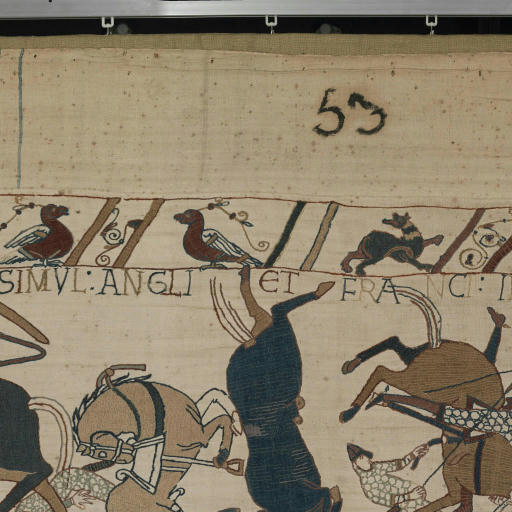 53
SIMVL: ANGLI ET FRANCI: I